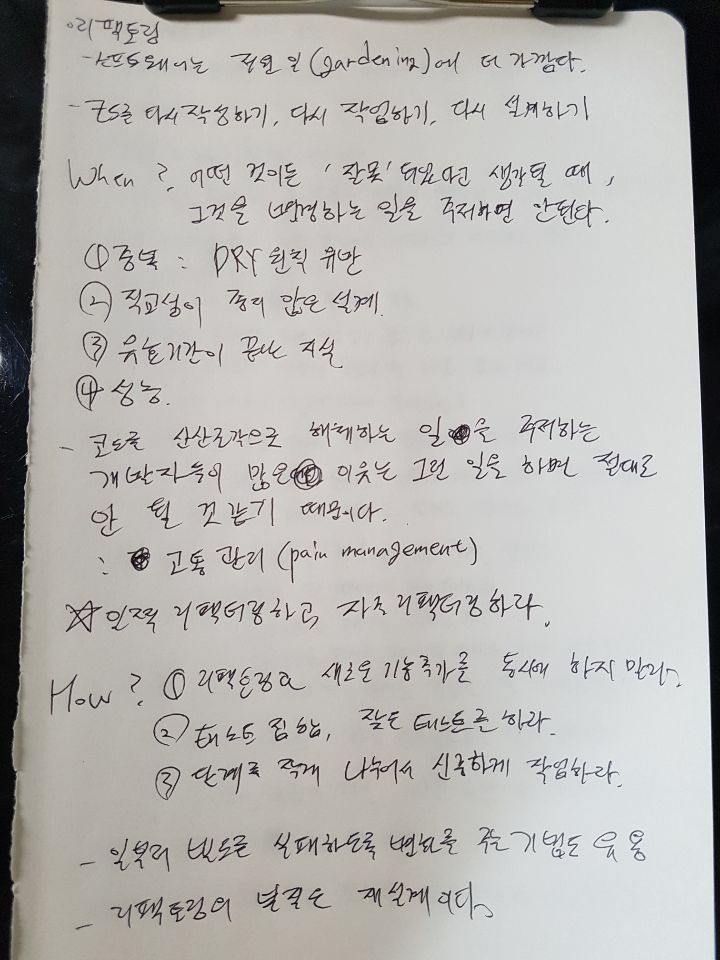 ◦리팩토링
- 소프트웨어는 정원 일(gardening)에 더 가깝다.
- 코드를 다시작성하기, 다시 작업하기, 다시 설계하기
When? 어떤 것이든 '잘못' 되었다고 생각될 때,
그것을 변경하는 일을 주저하면 안된다.
① 중복 : DRY 원칙 위반
② 직교성이 좋지 않은 설계.
③ 유효기간이 끝난 지식
④ 성능.
- 코드를 산산조각으로 해체하는 일을 주저하는
개발자들이 많은 이유는 그런 일을 하면 절대로
안 될 것 같기 때문이다.
: 고통 관리 (pain management)
☆ 일찍 리팩터링하고, 자주 리팩터링하라.
How? ① 리팩토링과 새로운 기능추가를 동시에 하지 말라.
② 테스트 집합, 잦은 테스트를 하라.
③ 단계를 작게 나누어서 신중하게 작업하라.
- 일부러 빌드를 실패하도록 변화를 주는 기법도 유용
- 리팩토링의 본질은 재설계이다.